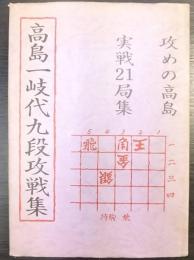 攻めの高島
実戦21局集
高島一岐代九段攻戦集
5 4 3 2 1
飛 角 王
金
銀
一
二
三
四
持駒 飛